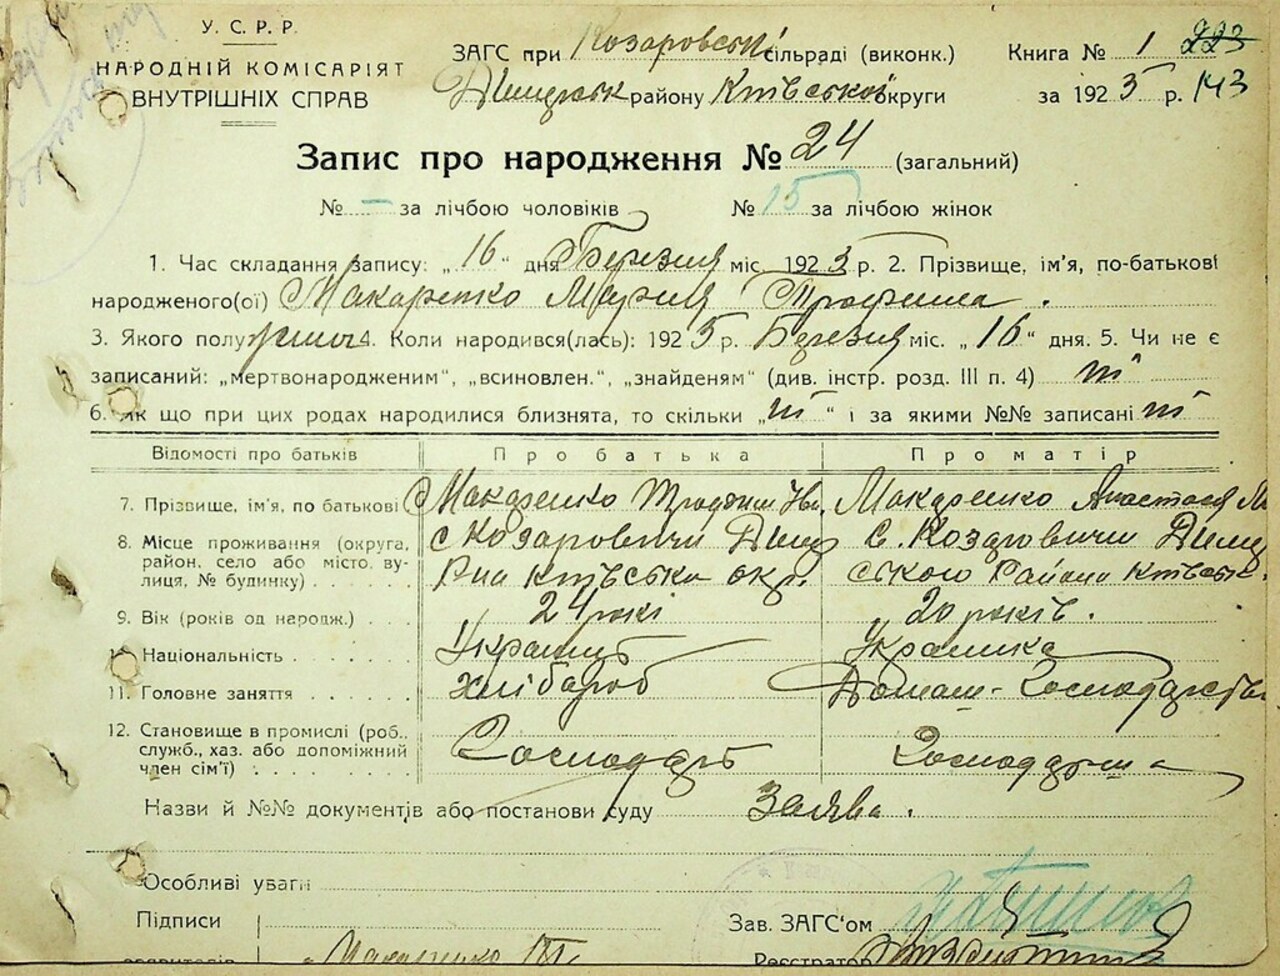 У. С. Р. Р.
НАРОДНІЙ КОМІСАРІЯТ
ВНУТРІШНІХ СПРАВ
ЗАГС при Козаровській сільраді (виконк.)
Димерськ району Київської округи
Книга № 1 223
за 1925 р. 143
Запис про народження № 24 (загальний)
№ – за лічбою чоловіків № 15 за лічбою жінок
1. Час складання запису: „16“ дня Березня міс. 1925 р. 2. Прізвище, ім'я, по-батькові
народженого(ої) Макаренко Мария Трофима.
3. Якого полу жіноч 4. Коли народився(лась): 1925 р. Березня міс. „16“ дня. 5. Чи не є
записаний: „мертвонародженим“, „всиновлен.“, „знайденям“ (див. інстр. розд. III п. 4) ні
6. Як що при цих родах народилися близнята, то скільки „ні“ і за якими №№ записані ні
Відомості про батьків Про батька Про матір
7. Прізвище, ім'я, по батькові Макаренко Трофим Ів. Макаренко Анастасия М
8. Місце проживання (округа, район, село або місто, вулиця, № будинку) с Козаровичи Димер Р-на Київська окр. С. Козаровичи Димерського Района Київськ.
9. Вік (років од народж.) 24 рокі 20 років.
10. Національність Украинец Украинка
11. Головне заняття Хлібароб Домаш-Господарств
12. Становище в промислі (роб., служб., хаз. або допоміжний член сім'ї) Господарь Господарша
Назви й №№ документів або постанови суду Заява.
Особливі уваги
Підписи
Зав. ЗАГС'ом
Макаренко
Реєстратор